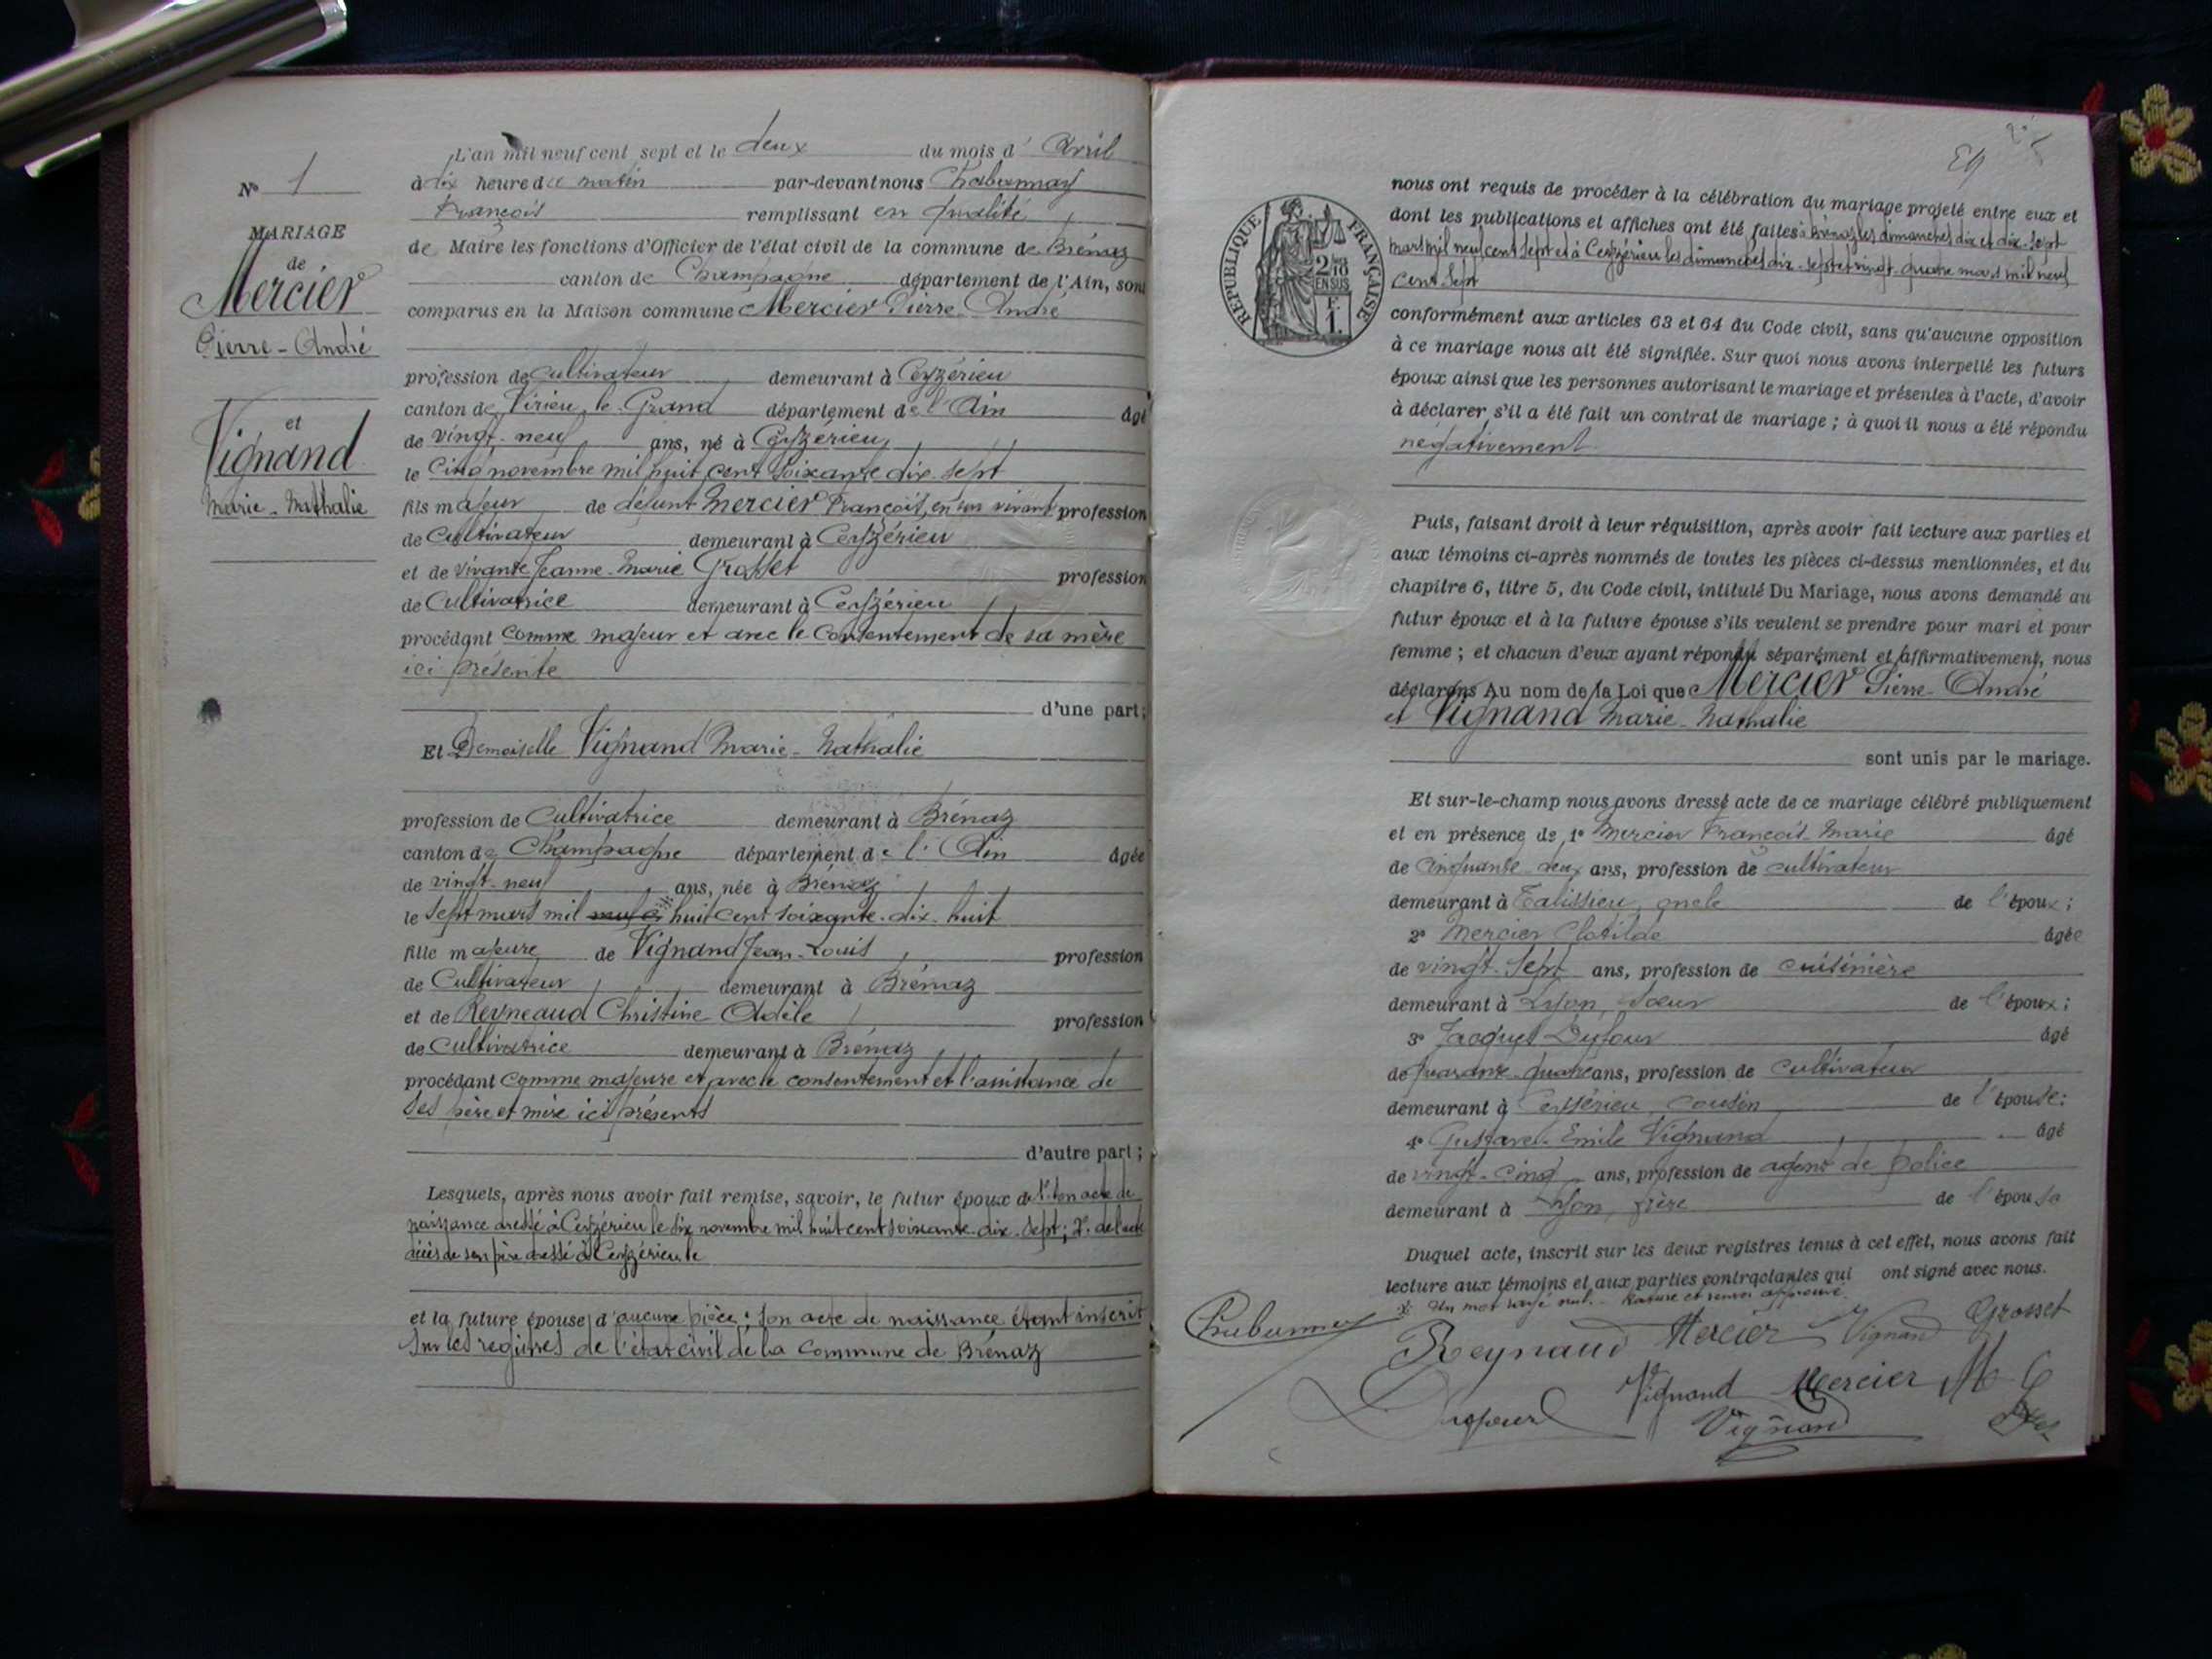 L'an mil neuf cent sept et le deux du mois d' Avril
N° 1
à dix heure du matin par-devant nous Chabannay
François remplissant en qualité
MARIAGE
de
Mercier
Pierre-André
et
Vignand
Marie-Nathalie
de Maire les fonctions d'Officier de l'état civil de la commune de Brénaz
canton de Champagne département de l'Ain, sont
comparus en la Maison commune Mercier Pierre André
profession de cultivateur demeurant à Ceyzérieu
canton de Virieu-le-Grand département de l'Ain âgé
de vingt-neuf ans, né à Ceyzérieu
le cinq novembre mil huit cent soixante dix-sept
fils majeur de défunt Mercier François, en son vivant profession
de Cultivateur demeurant à Ceyzérieu
et de vivante Jeanne-Marie Grosset profession
de Cultivatrice demeurant à Ceyzérieu
procédant comme majeur et avec le consentement de sa mère
ici présente
d'une part;
Et Demoiselle Vignand Marie-Nathalie
profession de Cultivatrice demeurant à Brénaz
canton de Champagne département de l'Ain âgée
de vingt-neuf ans, née à Brénaz
le sept mars mil huit cent soixante-dix-huit
fille majeure de Vignand Jean-Louis profession
de Cultivateur demeurant à Brénaz
et de Reyneaud Christine Adèle profession
de cultivatrice demeurant à Brénaz
procédant comme majeure et avec le consentement et l'assistance de
ses père et mère ici présents
d'autre part;
Lesquels, après nous avoir fait remise, savoir, le futur époux de 1° son acte de
naissance dressé à Ceyzérieu le six novembre mil huit cent soixante-dix-sept; 2° de l'acte
décès de son père dressé à Ceyzérieu le
et la future épouse d'aucune pièce; son acte de naissance étant inscrit
sur les registres de l'état civil de la commune de Brénaz
RÉPUBLIQUE FRANÇAISE
2/10
EN SUS
F.
1.
nous ont requis de procéder à la célébration du mariage projeté entre eux et
dont les publications et affiches ont été faites à Brénaz les dimanches dix et dix-sept
mars mil neuf cent sept et à Ceyzérieu les dimanches dix-sept et vingt-quatre mars mil neuf
cent sept
conformément aux articles 63 et 64 du Code civil, sans qu'aucune opposition
à ce mariage nous ait été signifiée. Sur quoi nous avons interpellé les futurs
époux ainsi que les personnes autorisant le mariage et présentes à l'acte, d'avoir
à déclarer s'il a été fait un contrat de mariage; à quoi il nous a été répondu
négativement
Puis, faisant droit à leur réquisition, après avoir fait lecture aux parties et
aux témoins ci-après nommés de toutes les pièces ci-dessus mentionnées, et du
chapitre 6, titre 5, du Code civil, intitulé Du Mariage, nous avons demandé au
futur époux et à la future épouse s'ils veulent se prendre pour mari et pour
femme; et chacun d'eux ayant répondu séparément et affirmativement, nous
déclarons Au nom de la Loi que Mercier Pierre-André
et Vignand Marie-Nathalie
sont unis par le mariage.
Et sur-le-champ nous avons dressé acte de ce mariage célébré publiquement
et en présence de 1° Mercier François Marie âgé
de cinquante deux ans, profession de cultivateur
demeurant à Talissieu, oncle de l'époux;
2° Mercier Clotilde âgée
de vingt-sept ans, profession de cuisinière
demeurant à Lyon, soeur de l'époux;
3° Jacques Dufour âgé
de quarante-quatre ans, profession de cultivateur
demeurant à Ceyzérieu, cousin de l'épouse;
4° Gustave-Emile Vignand âgé
de vingt-cinq ans, profession de agent de police
demeurant à Lyon, frère de l'épouse
Duquel acte, inscrit sur les deux registres tenus à cet effet, nous avons fait
lecture aux témoins et aux parties contractantes qui ont signé avec nous.
Un mot rayé nul. Rature et renvoi approuvé.
Reynaud Mercier Vignand Grosset
Vignand Mercier M C
Dufour Vignand